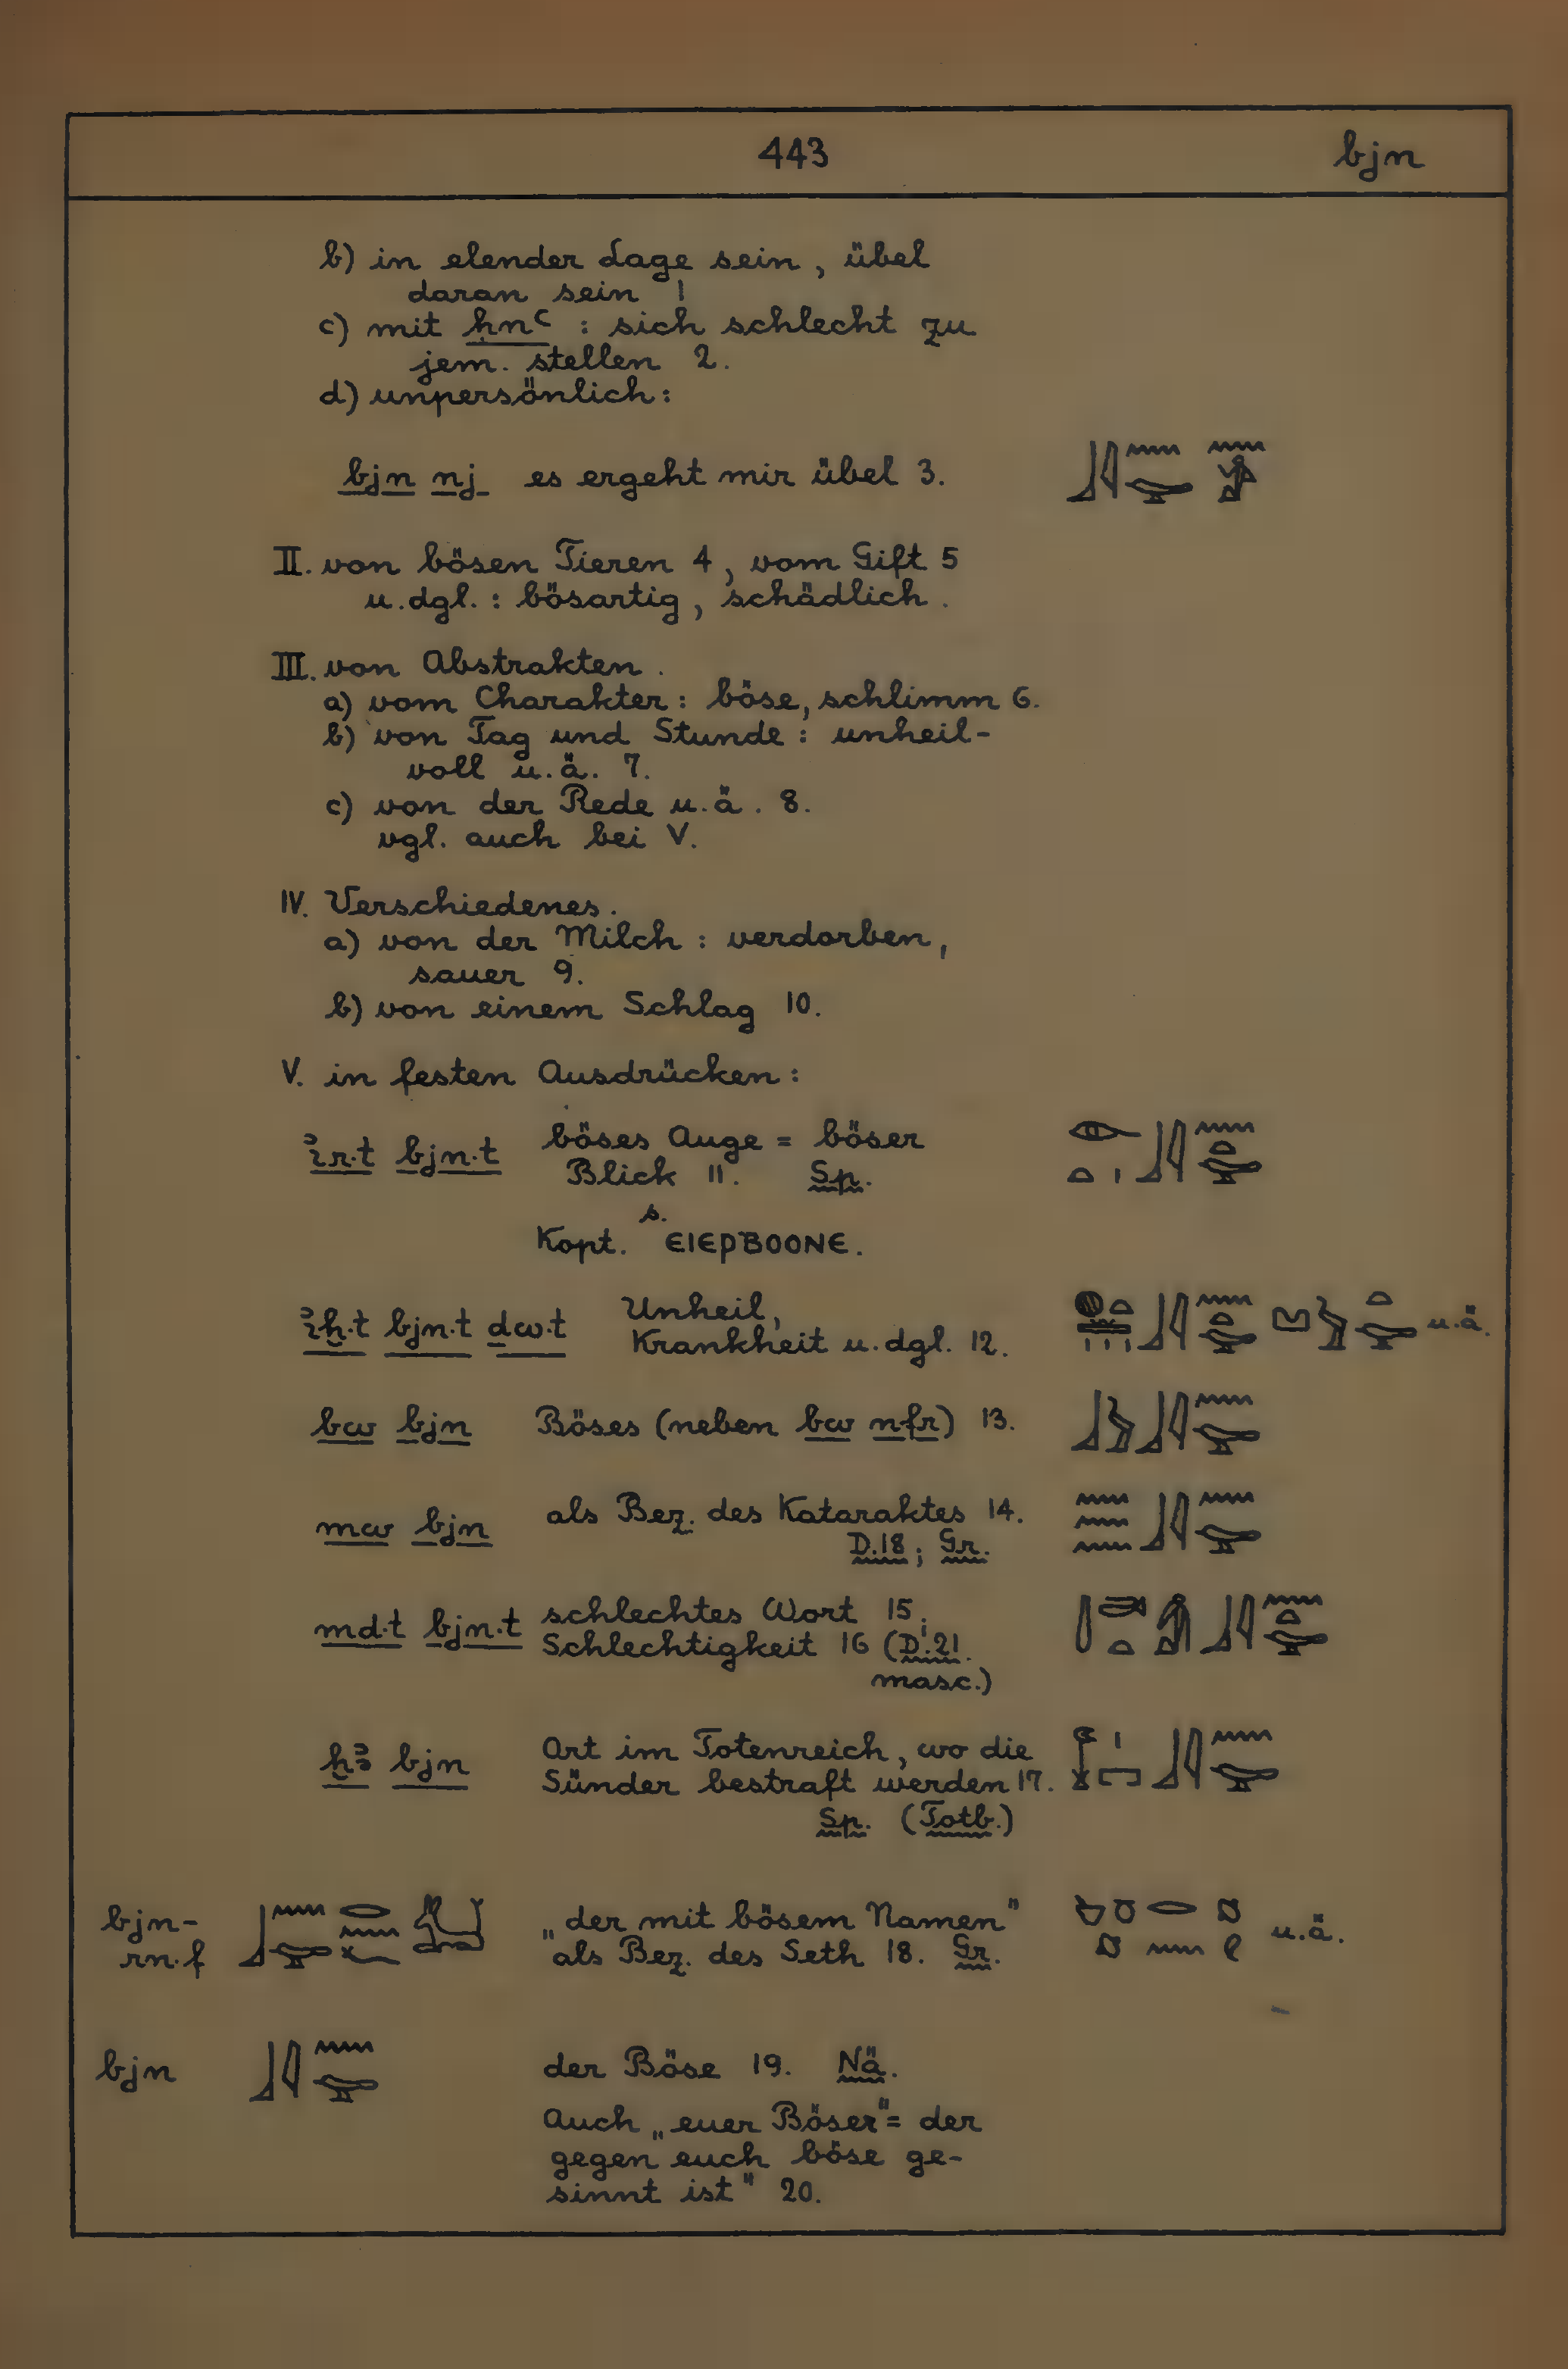 443 bjn
b) in elender Lage sein, übel
daran sein 1
c) mit ḥnꜥ : sich schlecht zu
jem. stellen 2.
d) unpersönlich:
bjn nj es ergeht mir übel 3.
II. von bösen Tieren 4, vom Gift 5
u.dgl.: bösartig, schädlich.
III. von Abstrakten.
a) vom Charakter: böse, schlimm 6.
b) von Tag und Stunde: unheil-
voll u.ä. 7.
c) von der Rede u.ä. 8.
vgl. auch bei V.
IV. Verschiedenes.
a) von der Milch: verdorben,
sauer 9.
b) von einem Schlag 10.
V. in festen Ausdrücken:
ꞽr.t bjn.t böses Auge = böser
Blick 11. Sp.
Kopt. s. ⲈⲒⲈⲢⲂⲞⲞⲚⲈ.
ꞽḫ.t bjn.t ḏw.t Unheil, u.ä.
Krankheit u.dgl. 12.
bw bjn Böses (neben bw nfr) 13.
mw bjn als Bez. des Kataraktes 14.
D.18; Gr.
md.t bjn.t schlechtes Wort 15;
Schlechtigkeit 16 (D.21.
masc.)
ḫꜣ bjn Ort im Totenreich, wo die
Sünder bestraft werden 17.
Sp. (Totb.)
bjn- „der mit bösem Namen"
rn.f als Bez. des Seth 18. Gr. u.ä.
bjn der Böse 19. Nä.
Auch „euer Böser" = der
gegen euch böse ge-
sinnt ist" 20.